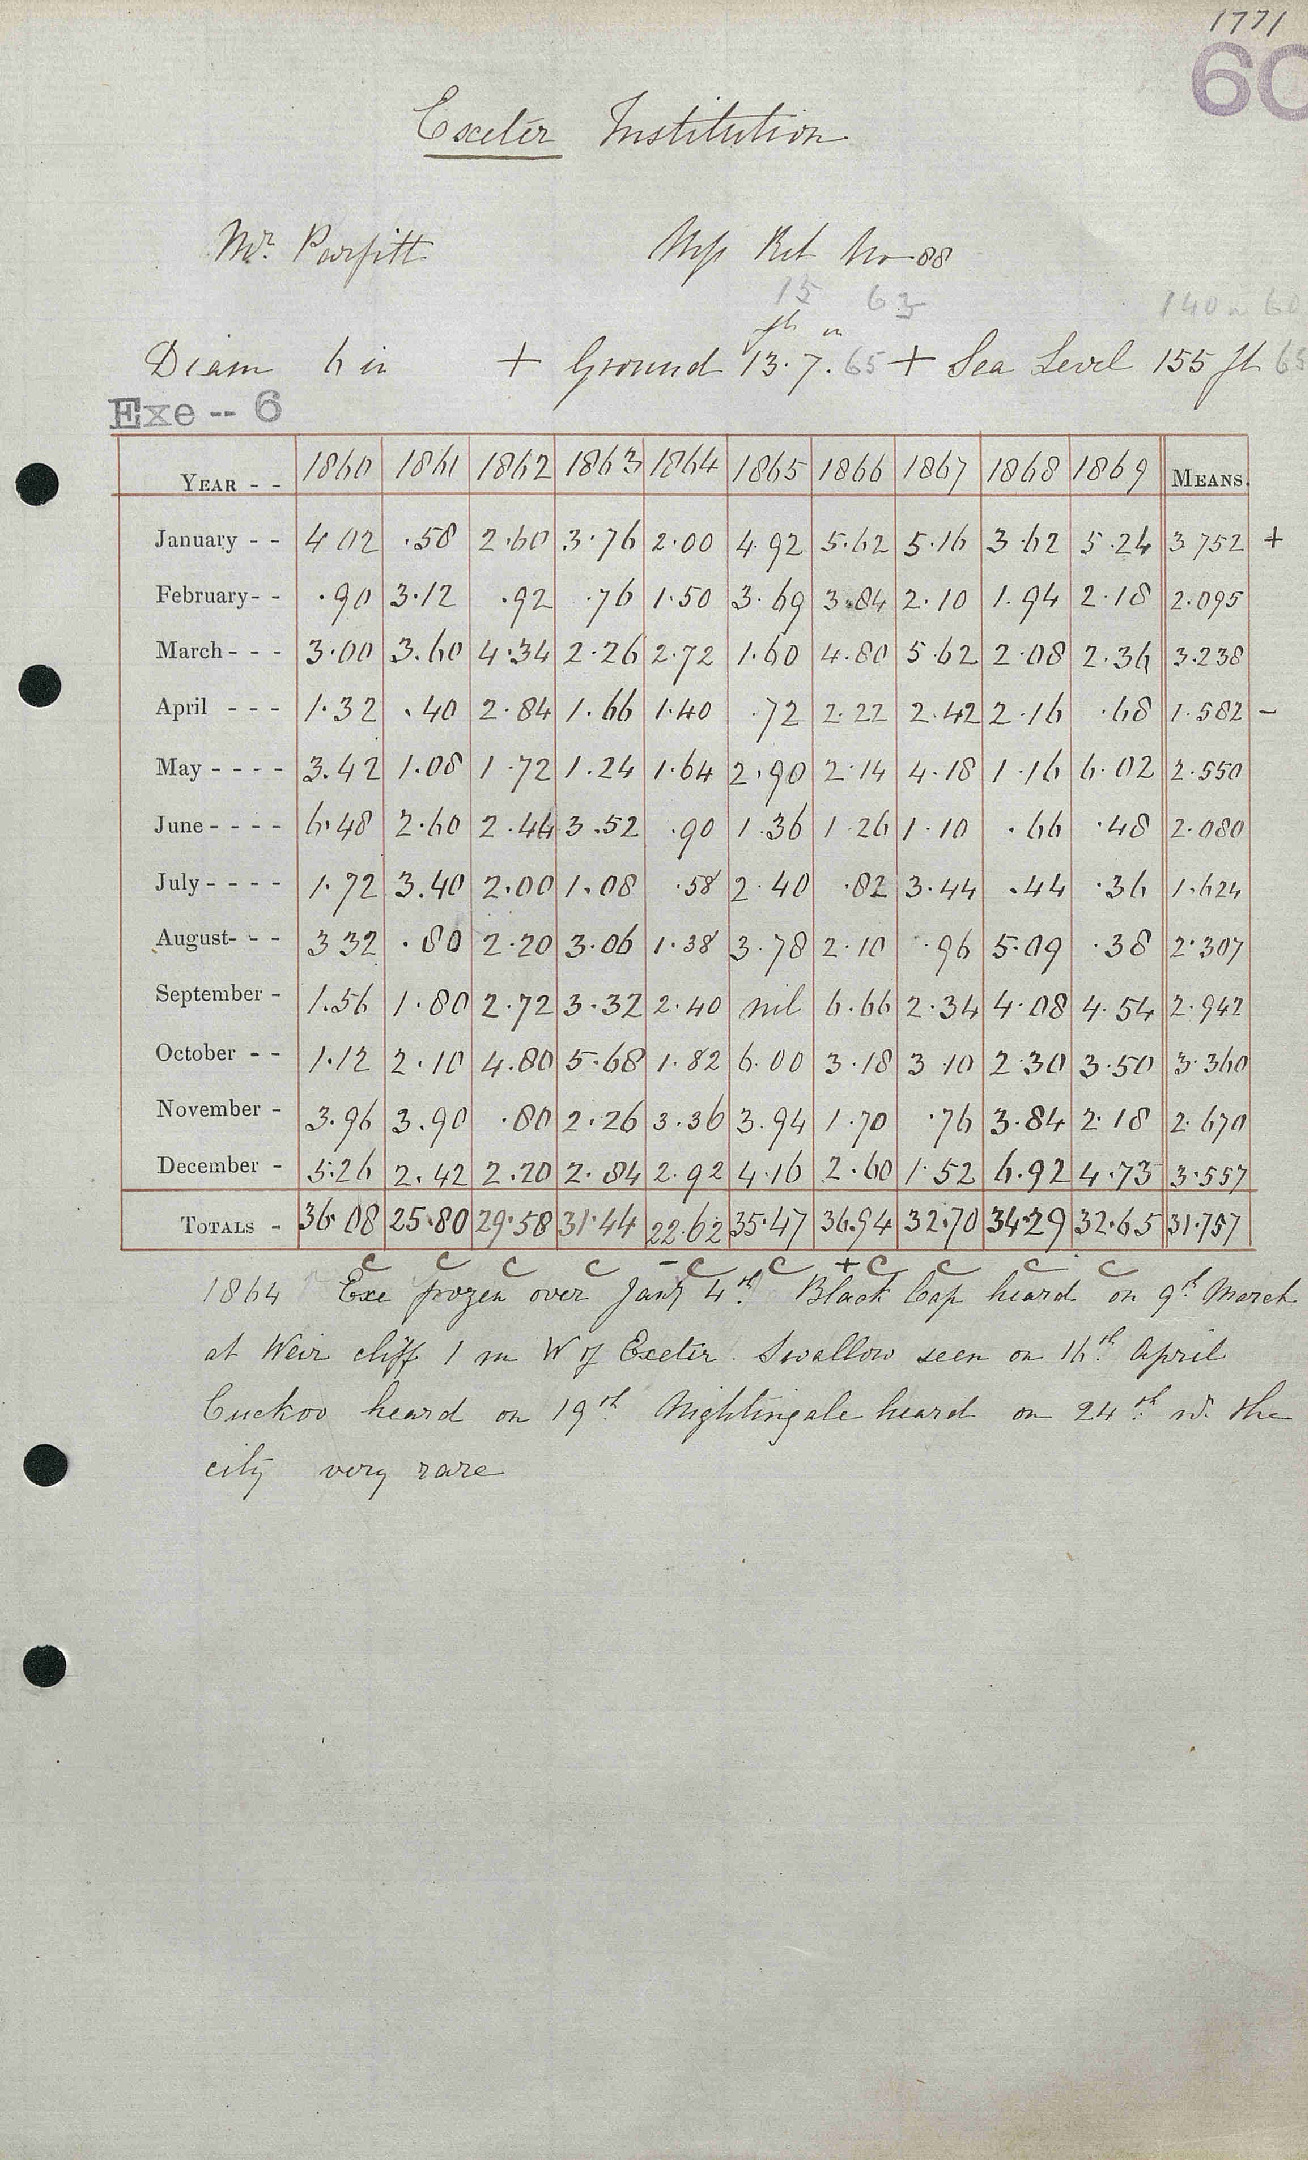 1771
60
Exeter Institution
Mr. Parfitt Ret No 88
15 63 140 60
ft in
Diam 6 in + Ground 13.7. 65 + Sea Level 155 ft 65
Exe -- 6
YEAR - - 1860 1861 1862 1863 1864 1865 1866 1867 1868 1869 MEANS.
January - - 4 02 .58 2.60 3.76 2.00 4.92 5.62 5.16 3.62 5.24 3 752 +
February - - .90 3.12 .92 .76 1.50 3.69 3.84 2.10 1.94 2.18 2.095
March - - - 3.00 3.60 4.34 2.26 2.72 1.60 4.80 5.62 2.08 2.36 3.238
April - - - 1.32 .40 2.84 1.66 1.40 .72 2.22 2.42 2.16 .68 1.582 -
May - - - - 3.42 1.08 1.72 1.24 1.64 2.90 2.14 4.18 1.16 6.02 2.550
June - - - - 6.48 2.60 2.44 3.52 .90 1.36 1.26 1.10 .66 .48 2.080
July - - - - 1.72 3.40 2.00 1.08 .58 2.40 .82 3.44 .44 .36 1.624
August - - - 3 32 .80 2.20 3.06 1.38 3.78 2.10 .96 5.09 .38 2.307
September - 1.56 1.80 2.72 3.32 2.40 nil 6.66 2.34 4.08 4.54 2.942
October - - 1.12 2.10 4.80 5.68 1.82 6.00 3.18 3 10 2.30 3.50 3.360
November - 3.96 3.90 .80 2.26 3.36 3.94 1.70 .76 3.84 2.18 2.670
December - 5.26 2.42 2.20 2.84 2.92 4.16 2.60 1.52 6.92 4.73 3.557
TOTALS - 36.08 25.80 29.58 31.44 22.62 35.47 36.94 32.70 34.29 32.65 31.757
c c c c - c c + c c c c
1864 Exe frozen over Jany 4th. Black Cap heard on 9th March
at Weir cliff 1 m W of Exeter. Swallow seen on 16th April
Cuckoo heard on 19th Nightingale heard on 24th nr. the
city very rare